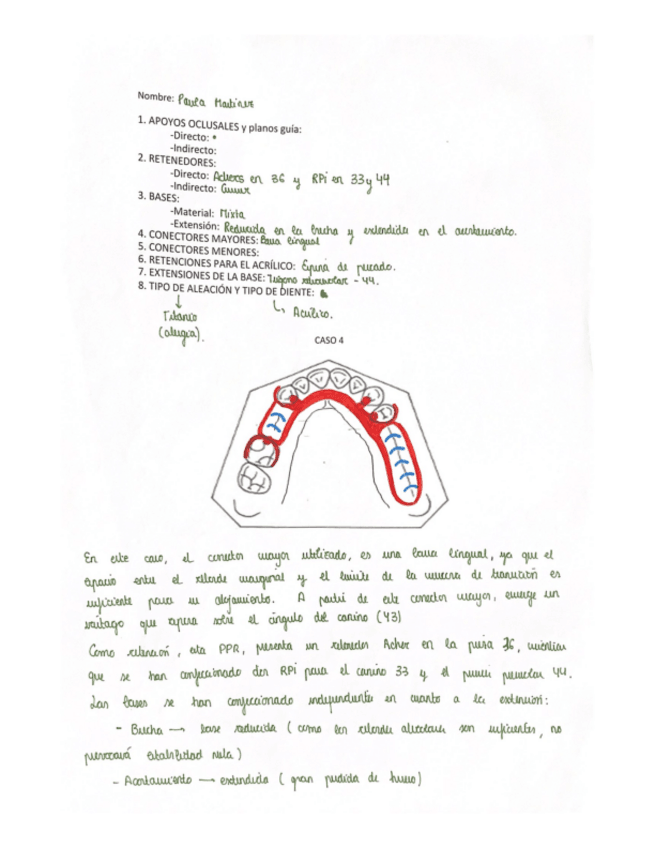 Nombre: Paula Martínez
1. APOYOS OCLUSALES y planos guía:
-Directo: *
-Indirecto:
2. RETENEDORES:
-Directo: Ackers en 36 y RPI en 33 y 44
-Indirecto:
3. BASES:
-Material: Mixta
-Extensión: Reducida en la brecha y extendida en el acortamiento.
4. CONECTORES MAYORES: Barra lingual
5. CONECTORES MENORES:
6. RETENCIONES PARA EL ACRÍLICO: Espina de pescado.
7. EXTENSIONES DE LA BASE: Trígono retromolar - 44.
8. TIPO DE ALEACIÓN Y TIPO DE DIENTE:
Titanio
(alergia).
Acrílico.
CASO 4
En este caso, el conector mayor utilizado, es una barra lingual, ya que el
espacio entre el reborde marginal y el límite de la mucosa de transición es
suficiente para su alojamiento. A partir de este conector mayor, emerge un
vástago que apoya sobre el cíngulo del canino (43)
Como retención, esta PPR, presenta un retenedor Acker en la pieza 36, mientras
que se han confeccionado dos RPI para el canino 33 y el primer premolar 44.
Las bases se han confeccionado independientes en cuanto a la extensión:
- Brecha → base reducida (como los rebordes alveolares son suficientes, no
provocará estabilidad nula)
- Acortamiento → extendida (gran pérdida de hueso)